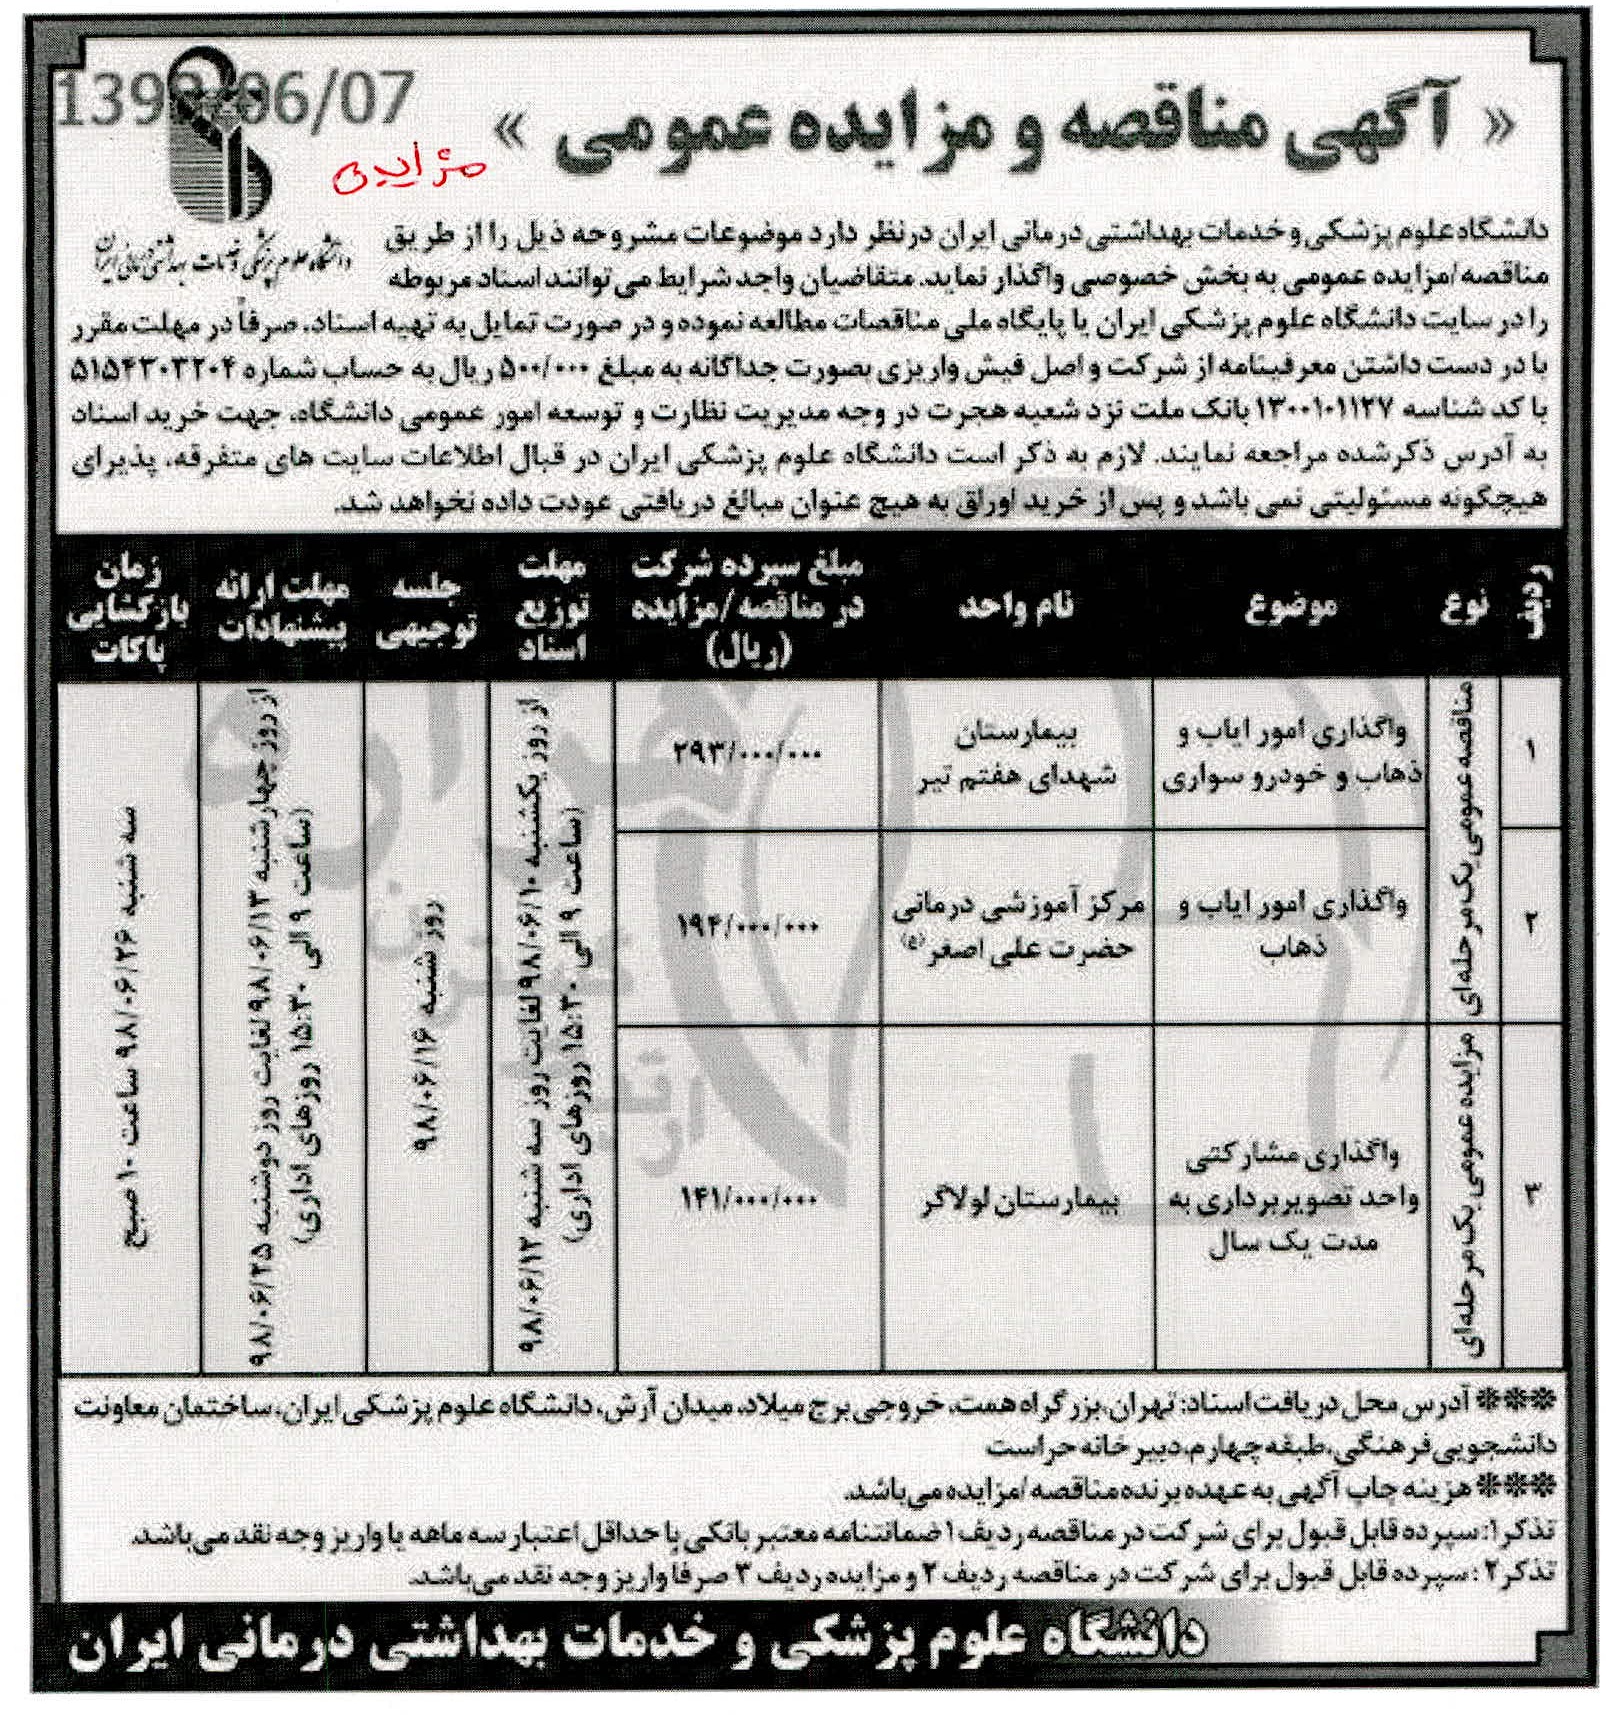 1398/06/07
« آگهی مناقصه و مزایده عمومی »
مزایده
دانشگاه علوم پزشکی و خدمات بهداشتی درمانی ایران
دانشگاه علوم پزشکی و خدمات بهداشتی درمانی ایران درنظر دارد موضوعات مشروحه ذیل را از طریق
مناقصه/مزایده عمومی به بخش خصوصی واگذار نماید. متقاضیان واجد شرایط می توانند اسناد مربوطه
را در سایت دانشگاه علوم پزشکی ایران یا پایگاه ملی مناقصات مطالعه نموده و در صورت تمایل به تهیه اسناد، صرفاً در مهلت مقرر
با در دست داشتن معرفینامه از شرکت و اصل فیش واریزی بصورت جداگانه به مبلغ ۵۰۰/۰۰۰ ریال به حساب شماره ۵۱۵۴۳۰۳۲۰۴
با کد شناسه ۱۳۰۰۱۰۱۱۲۷ بانک ملت نزد شعبه هجرت در وجه مدیریت نظارت و توسعه امور عمومی دانشگاه، جهت خرید اسناد
به آدرس ذکرشده مراجعه نمایند. لازم به ذکر است دانشگاه علوم پزشکی ایران در قبال اطلاعات سایت های متفرقه، پذیرای
هیچگونه مسئولیتی نمی باشد و پس از خرید اوراق به هیچ عنوان مبالغ دریافتی عودت داده نخواهد شد.
ردیف
نوع
موضوع
نام واحد
مبلغ سپرده شرکت
در مناقصه/مزایده
(ریال)
مهلت
توزیع
اسناد
جلسه
توجیهی
مهلت ارائه
پیشنهادات
زمان
بازگشایی
پاکات
۱
مناقصه عمومی یک مرحله‌ای
واگذاری امور ایاب و
ذهاب و خودرو سواری
بیمارستان
شهدای هفتم تیر
۲۹۳/۰۰۰/۰۰۰
از روز یکشنبه ۹۸/۰۶/۱۰ لغایت روز سه شنبه ۹۸/۰۶/۱۲
(ساعت ۹ الی ۱۵:۳۰ روزهای اداری)
روز شنبه ۹۸/۰۶/۱۶
از روز چهارشنبه ۹۸/۰۶/۱۳ لغایت روز دوشنبه ۹۸/۰۶/۲۵
(ساعت ۹ الی ۱۵:۳۰ روزهای اداری)
سه شنبه ۹۸/۰۶/۲۶ ساعت ۱۰ صبح
۲
واگذاری امور ایاب و
ذهاب
مرکز آموزشی درمانی
حضرت علی اصغر (ع)
۱۹۴/۰۰۰/۰۰۰
۳
مزایده عمومی یک مرحله‌ای
واگذاری مشارکتی
واحد تصویربرداری به
مدت یک سال
بیمارستان لولاگر
۱۴۱/۰۰۰/۰۰۰
*** آدرس محل دریافت اسناد: تهران، بزرگراه همت، خروجی برج میلاد، میدان آرش، دانشگاه علوم پزشکی ایران، ساختمان معاونت
دانشجویی فرهنگی، طبقه چهارم، دبیرخانه حراست
*** هزینه چاپ آگهی به عهده برنده مناقصه/مزایده می باشد.
تذکر۱: سپرده قابل قبول برای شرکت در مناقصه ردیف ۱ ضمانتنامه معتبر بانکی با حداقل اعتبار سه ماهه یا واریز وجه نقد می باشد.
تذکر۲: سپرده قابل قبول برای شرکت در مناقصه ردیف ۲ و مزایده ردیف ۳ صرفا واریز وجه نقد می باشد.
دانشگاه علوم پزشکی و خدمات بهداشتی درمانی ایران